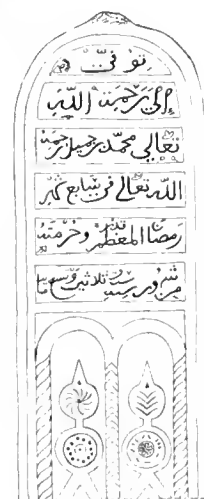 توفي
إلى رحمة الله
تعالى محمد بن جميل رحمة
الله تعالى في سابع شهر
رمضان المعظم قدره وحرمته
من شهور سنة ثلاثين وتسعمائة